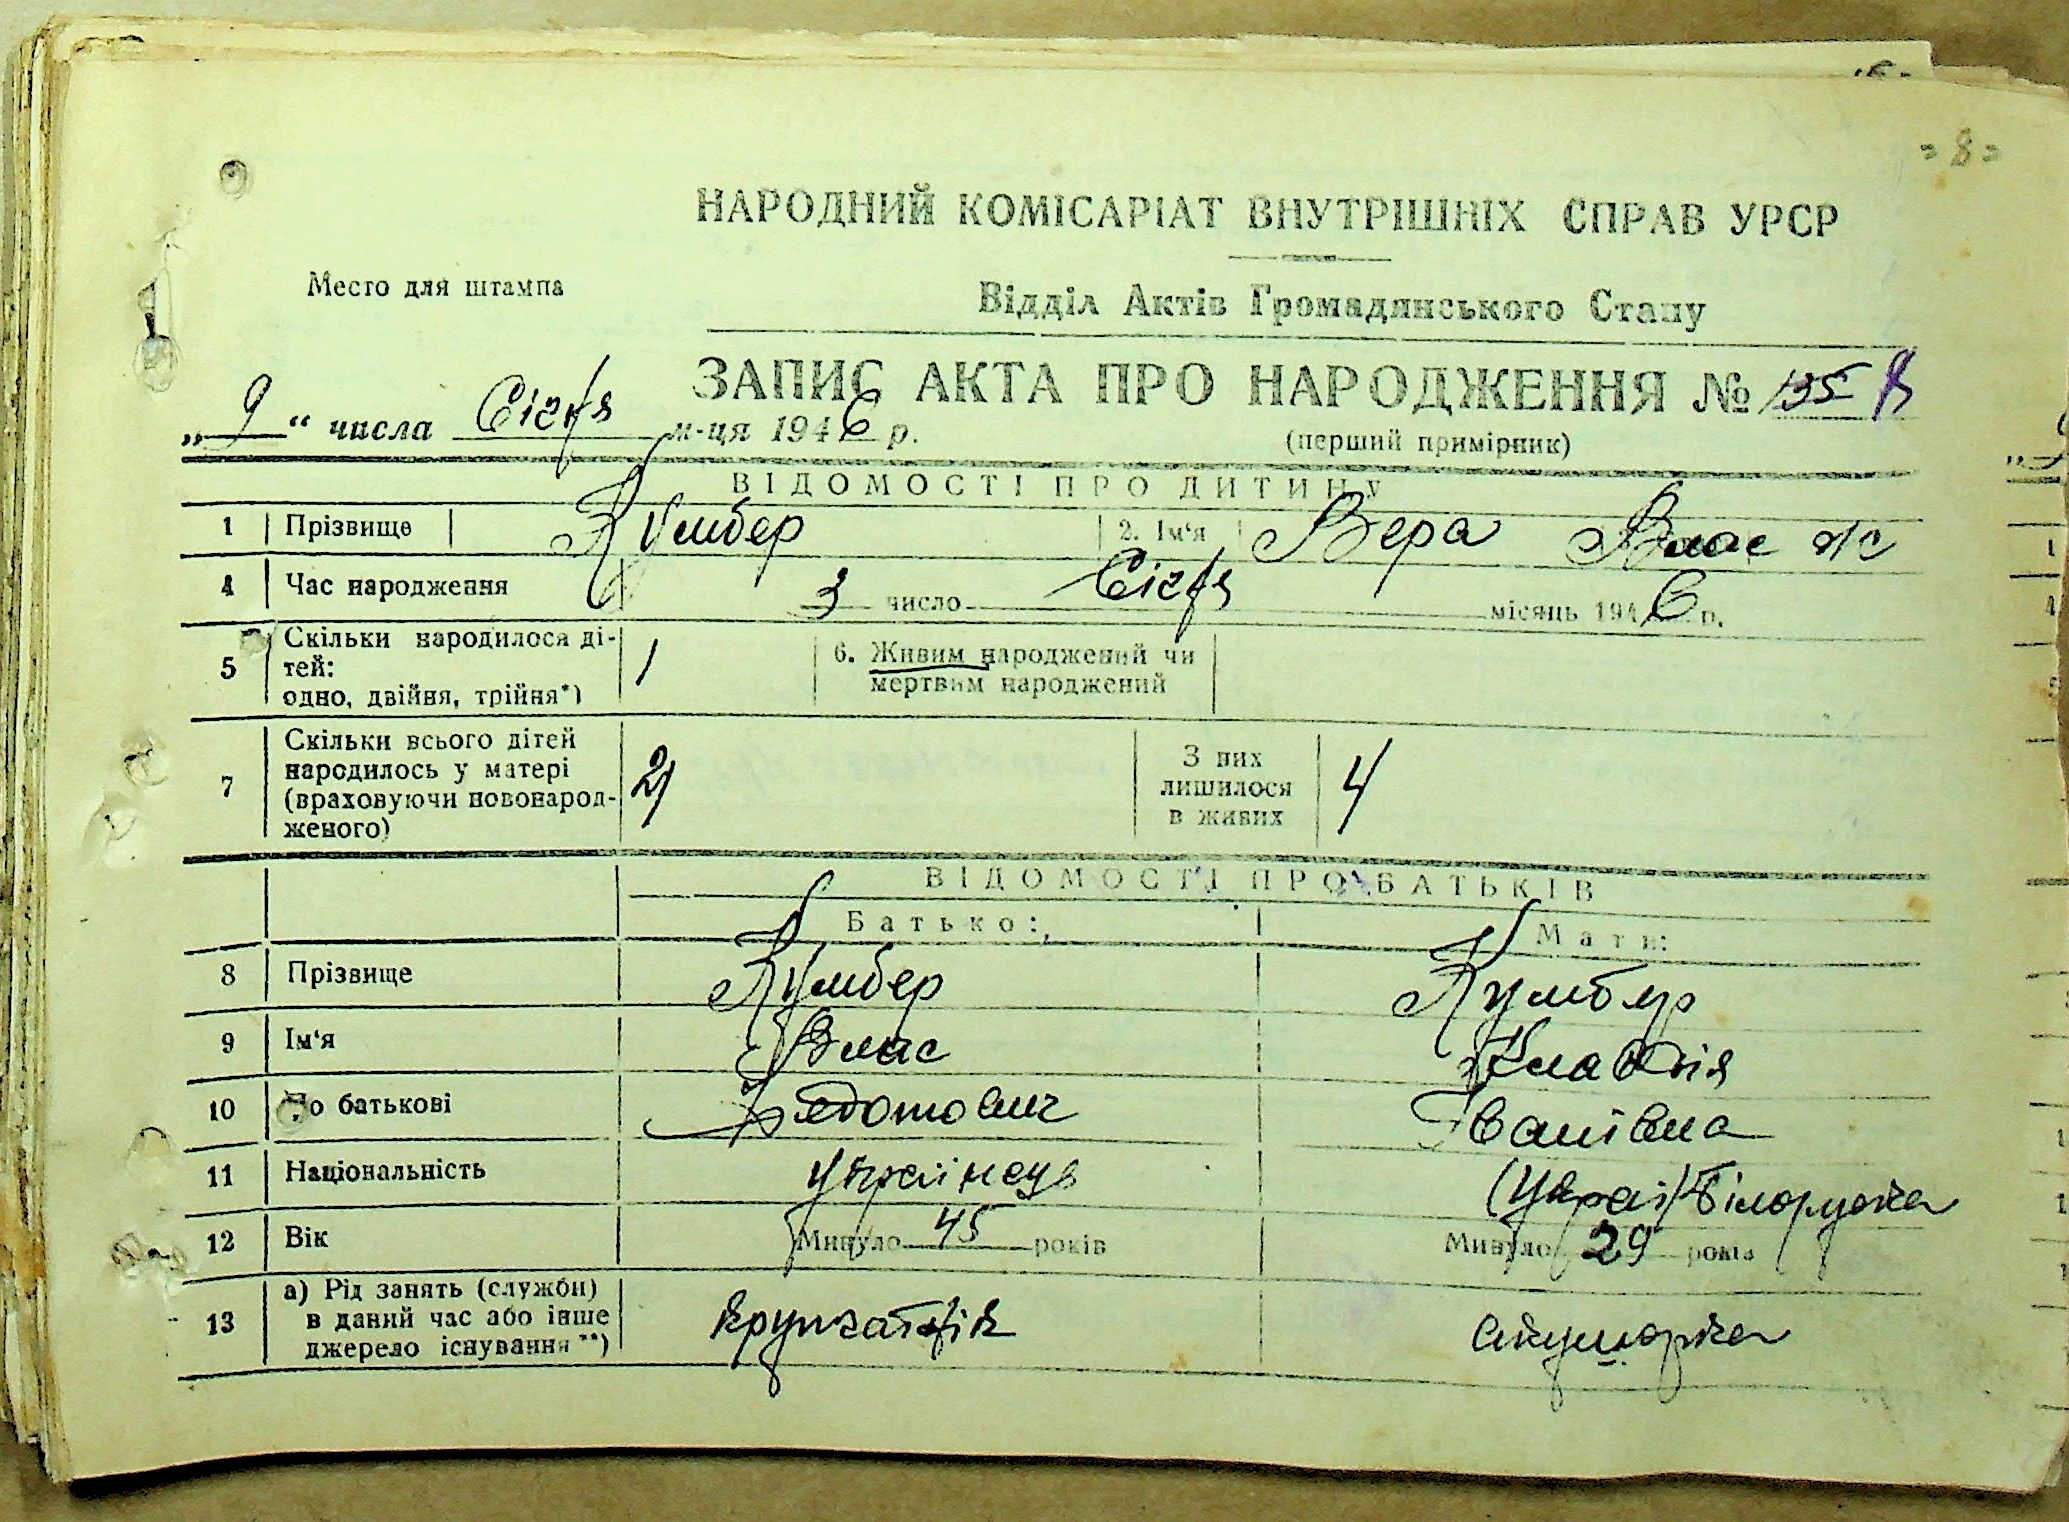 = 8 =
НАРОДНИЙ КОМІСАРІАТ ВНУТРІШНІХ СПРАВ УРСР
Место для штампа
Відділ Актів Громадянського Стану
ЗАПИС АКТА ПРО НАРОДЖЕННЯ № 135
„ 9 “ числа Січня м-ця 1946 р.
(перший примірник)
ВІДОМОСТІ ПРО ДИТИНУ
1 Прізвище Кумбер 2. Ім‘я Вера Влас
4 Час народження 3 число Січня місяць 1946 р.
5 Скільки народилося ді-
тей:
одно, двійня, трійня*) 1 6. Живим народжений чи
мертвим народжений
7 Скільки всього дітей
народилось у матері
(враховуючи новонарод-
женого) З них
лишилося
в живих 4
ВІДОМОСТІ ПРО БАТЬКІВ
Батько: Мати:
8 Прізвище Кумбер Кумбер
9 Ім‘я Влас Клавдія
10 По батькові Федотович Іванівна
11 Національність українець (Украї) Білоруска
12 Вік Минуло 45 років Минуло 29 років
13 а) Рід занять (служби)
в даний час або інше
джерело існування **) крупчатнік акушорка